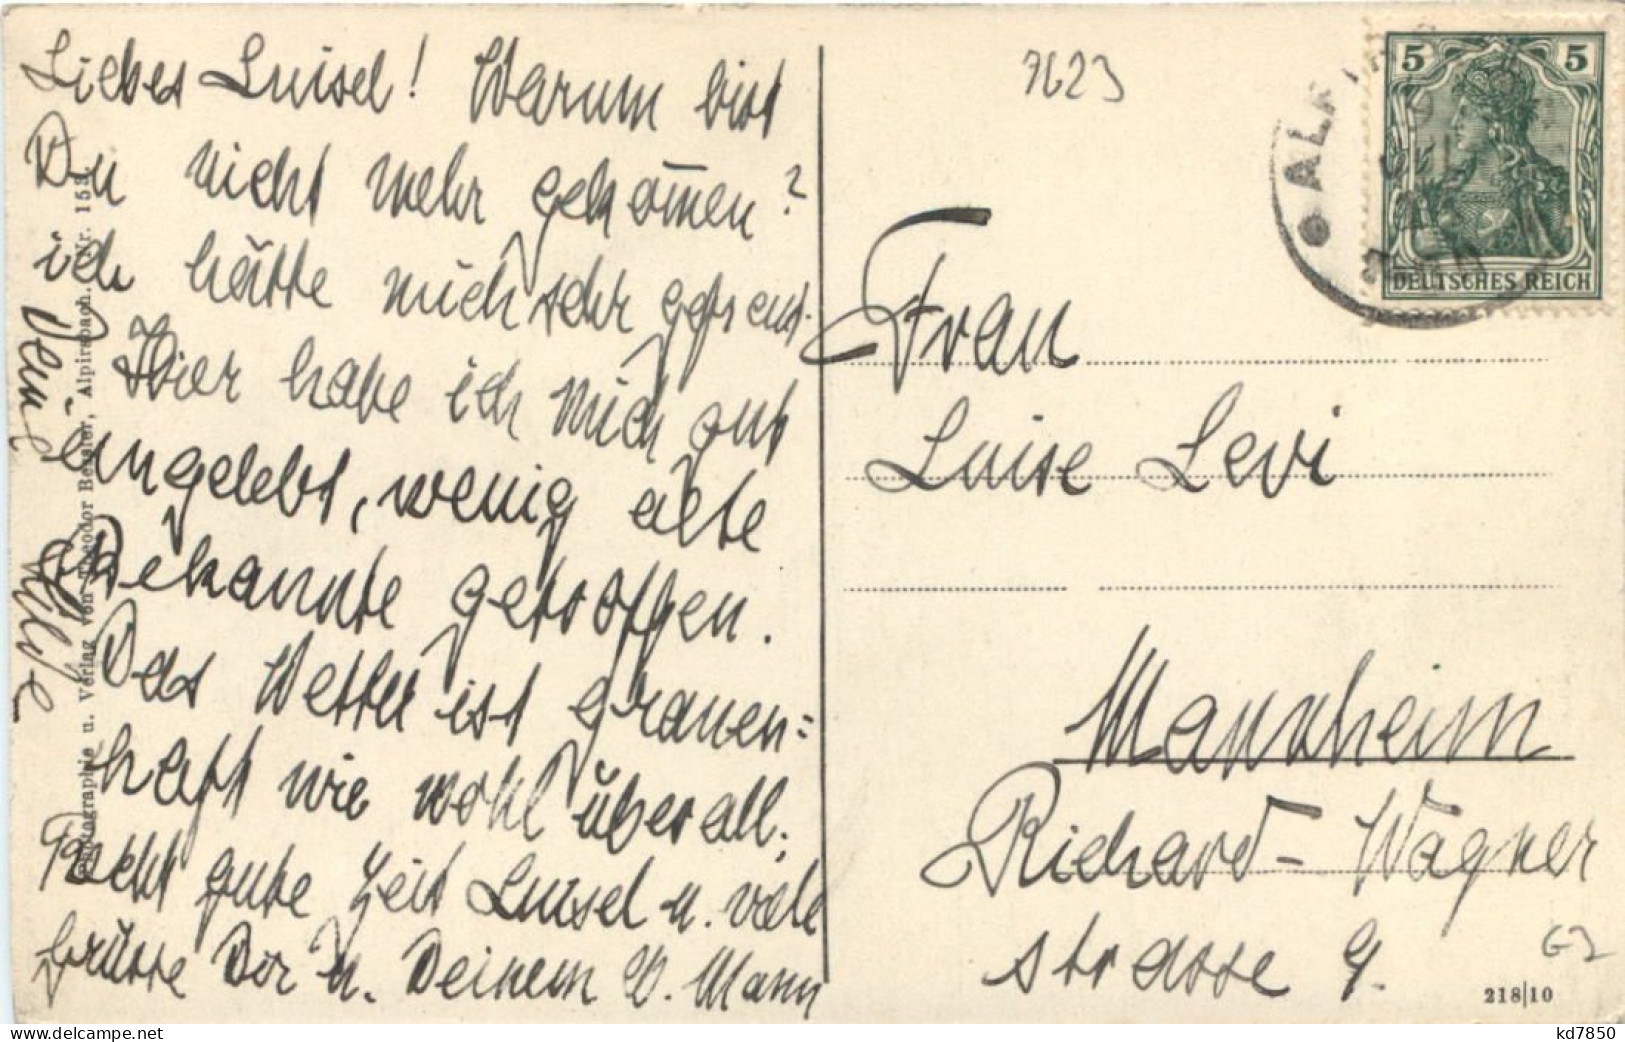 Liebes Luisel! Warum bist
Du nicht mehr gekom̄en?
ich hätte mich sehr gefreut.
Hier habe ich mich gut
eingelebt, wenig alte
Bekannte getroffen.
Das Wetter ist grauen=
haft wie wohl überall.
Recht gute Zeit Luisel u. viele
Grüsse Dir u. Deinem l. Mann
Deine
Photographie u. Verlag von Theodor Alpirsbach. Nr. 153.
7623
5 5
DEUTSCHES REICH
ALPIRS
Frau
Luise Levi
Mannheim
Richard-Wagner
strasse 9.
218|10
www.delcampe.net
kd7850